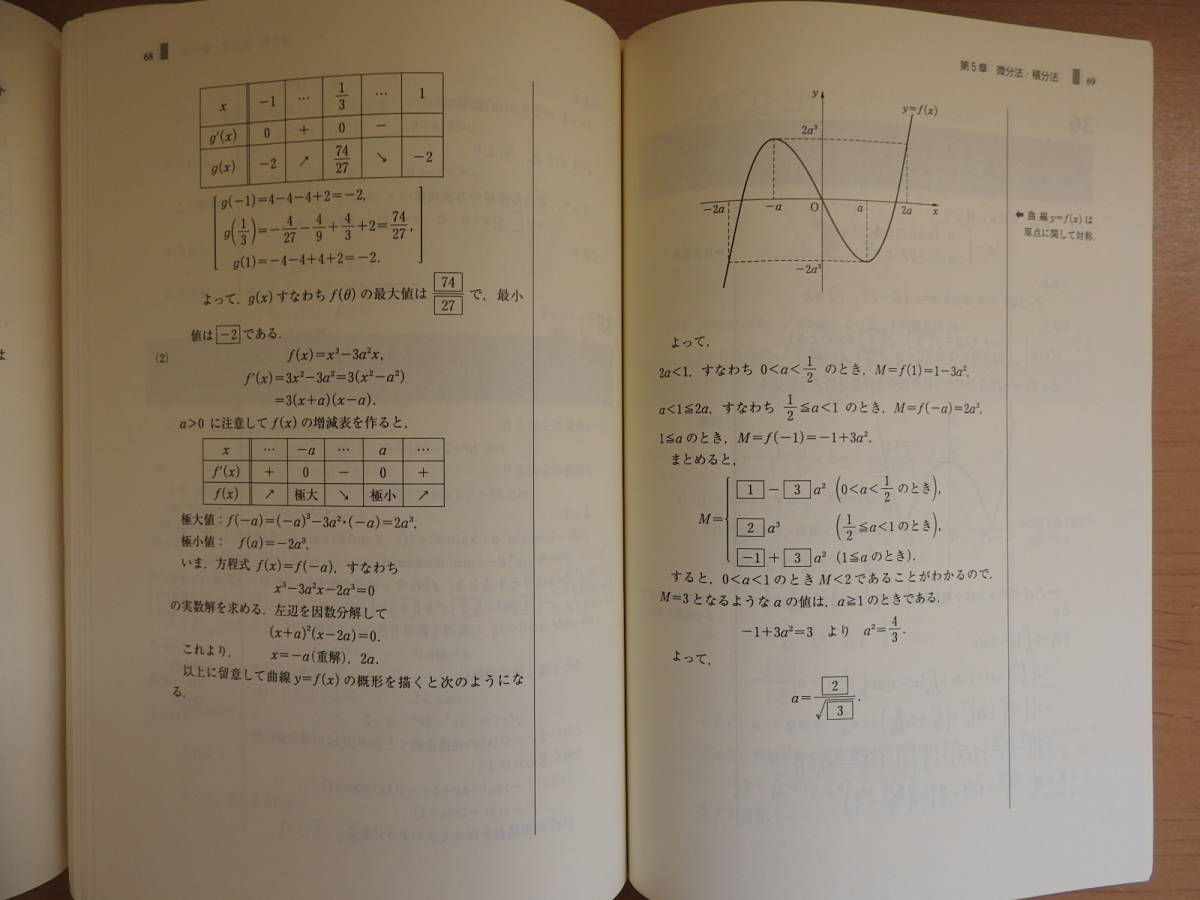 68
x −1 … 1/3 … 1
g′(x) 0 + 0 −
g(x) −2 ↗ 74/27 ↘ −2
g(−1)=4−4−4+2=−2,
g(1/3)=−4/27−4/9+4/3+2=74/27,
g(1)=−4−4+4+2=−2.
よって，g(x) すなわち f(θ) の最大値は 74/27 で，最小
値は −2 である．
(2) f(x)=x³−3a²x,
f′(x)=3x²−3a²=3(x²−a²)
=3(x+a)(x−a).
a>0 に注意して f(x) の増減表を作ると，
x … −a … a …
f′(x) + 0 − 0 +
f(x) ↗ 極大 ↘ 極小 ↗
極大値：f(−a)=(−a)³−3a²・(−a)=2a³,
極小値： f(a)=−2a³,
いま，方程式 f(x)=f(−a)，すなわち
x³−3a²x−2a³=0
の実数解を求める．左辺を因数分解して
(x+a)²(x−2a)=0.
これより， x=−a(重解)，2a.
以上に留意して曲線 y=f(x) の概形を描くと次のようにな
る．
第5章 微分法・積分法 69
y
y=f(x)
2a³
−2a −a O a 2a x
−2a³
← 曲線 y=f(x) は
原点に関して対称．
よって，
2a<1，すなわち 0<a<1/2 のとき，M=f(1)=1−3a²,
a<1≦2a，すなわち 1/2≦a<1 のとき，M=f(−a)=2a³,
1≦a のとき，M=f(−1)=−1+3a².
まとめると，
1 − 3 a² (0<a<1/2 のとき),
M= 2 a³ (1/2≦a<1 のとき),
−1 + 3 a² (1≦a のとき).
すると，0<a<1 のとき M<2 であることがわかるので，
M=3 となるような a の値は，a≧1 のときである．
−1+3a²=3 より a²=4/3.
よって，
a=2/√3.